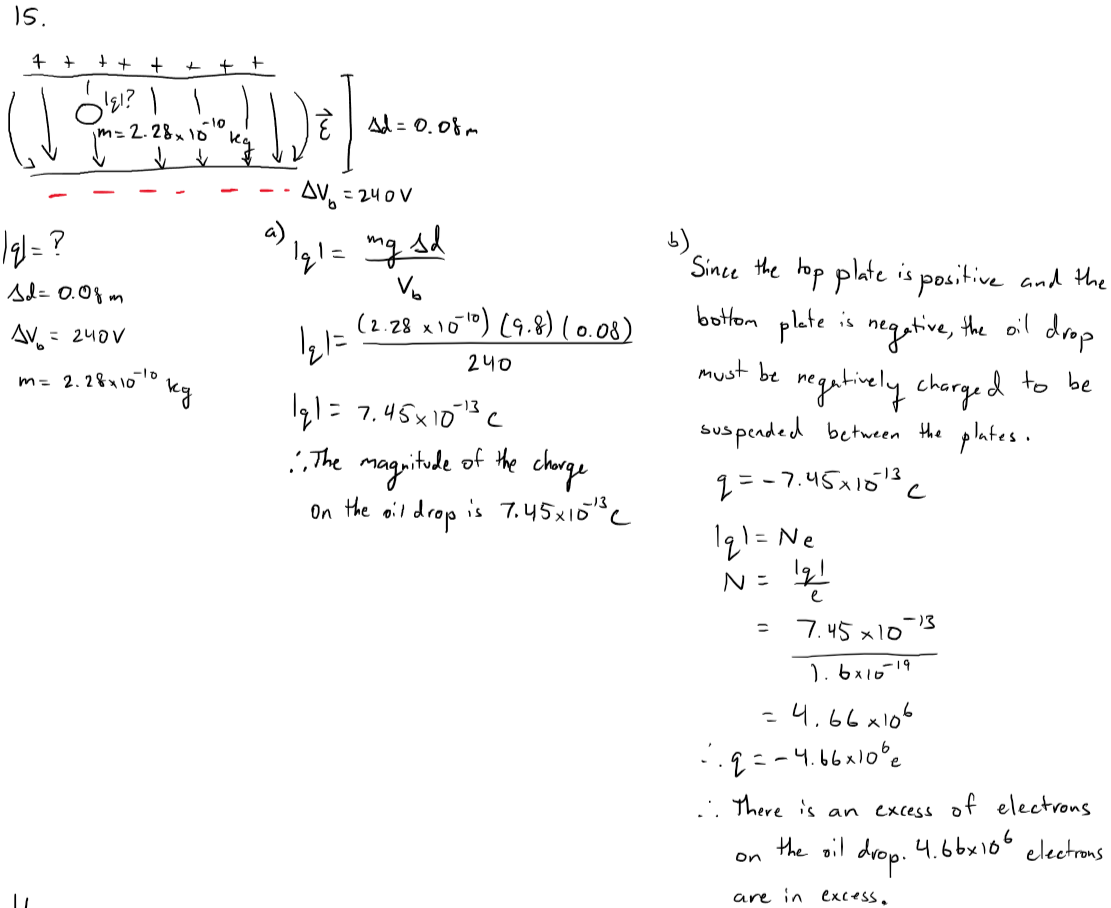 15.
+ + + + + + + +
|q|?
m = 2.28 x 10^-10 kg
ε⃗
Δd = 0.08 m
- - - - - - -
ΔV_b = 240 V
|q| = ?
Δd = 0.08 m
ΔV_b = 240 V
m = 2.28 x 10^-10 kg
a)
|q| = mg Δd / V_b
|q| = (2.28 x 10^-10) (9.8) (0.08) / 240
|q| = 7.45 x 10^-13 C
∴ The magnitude of the charge
on the oil drop is 7.45 x 10^-13 C
b)
Since the top plate is positive and the
bottom plate is negative, the oil drop
must be negatively charged to be
suspended between the plates.
q = -7.45 x 10^-13 C
|q| = Ne
N = |q| / e
= 7.45 x 10^-13 / 1.6 x 10^-19
= 4.66 x 10^6
∴ q = -4.66 x 10^6 e
∴ There is an excess of electrons
on the oil drop. 4.66 x 10^6 electrons
are in excess.